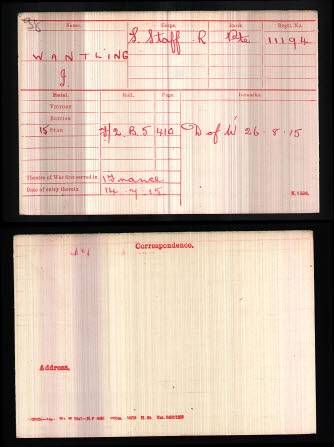 Name. Corps. Rank. Regtl. No.
WANTLING S. Staff. R Pte 11194
J.
Medal. Roll. Page. Remarks.
Victory
British
15 Star J 2. B. 5 410 D of W 26-8-15
Theatre of War first served in (1) France
Date of entry therein 14-7-15
K. 1380.
Correspondence.
Address.